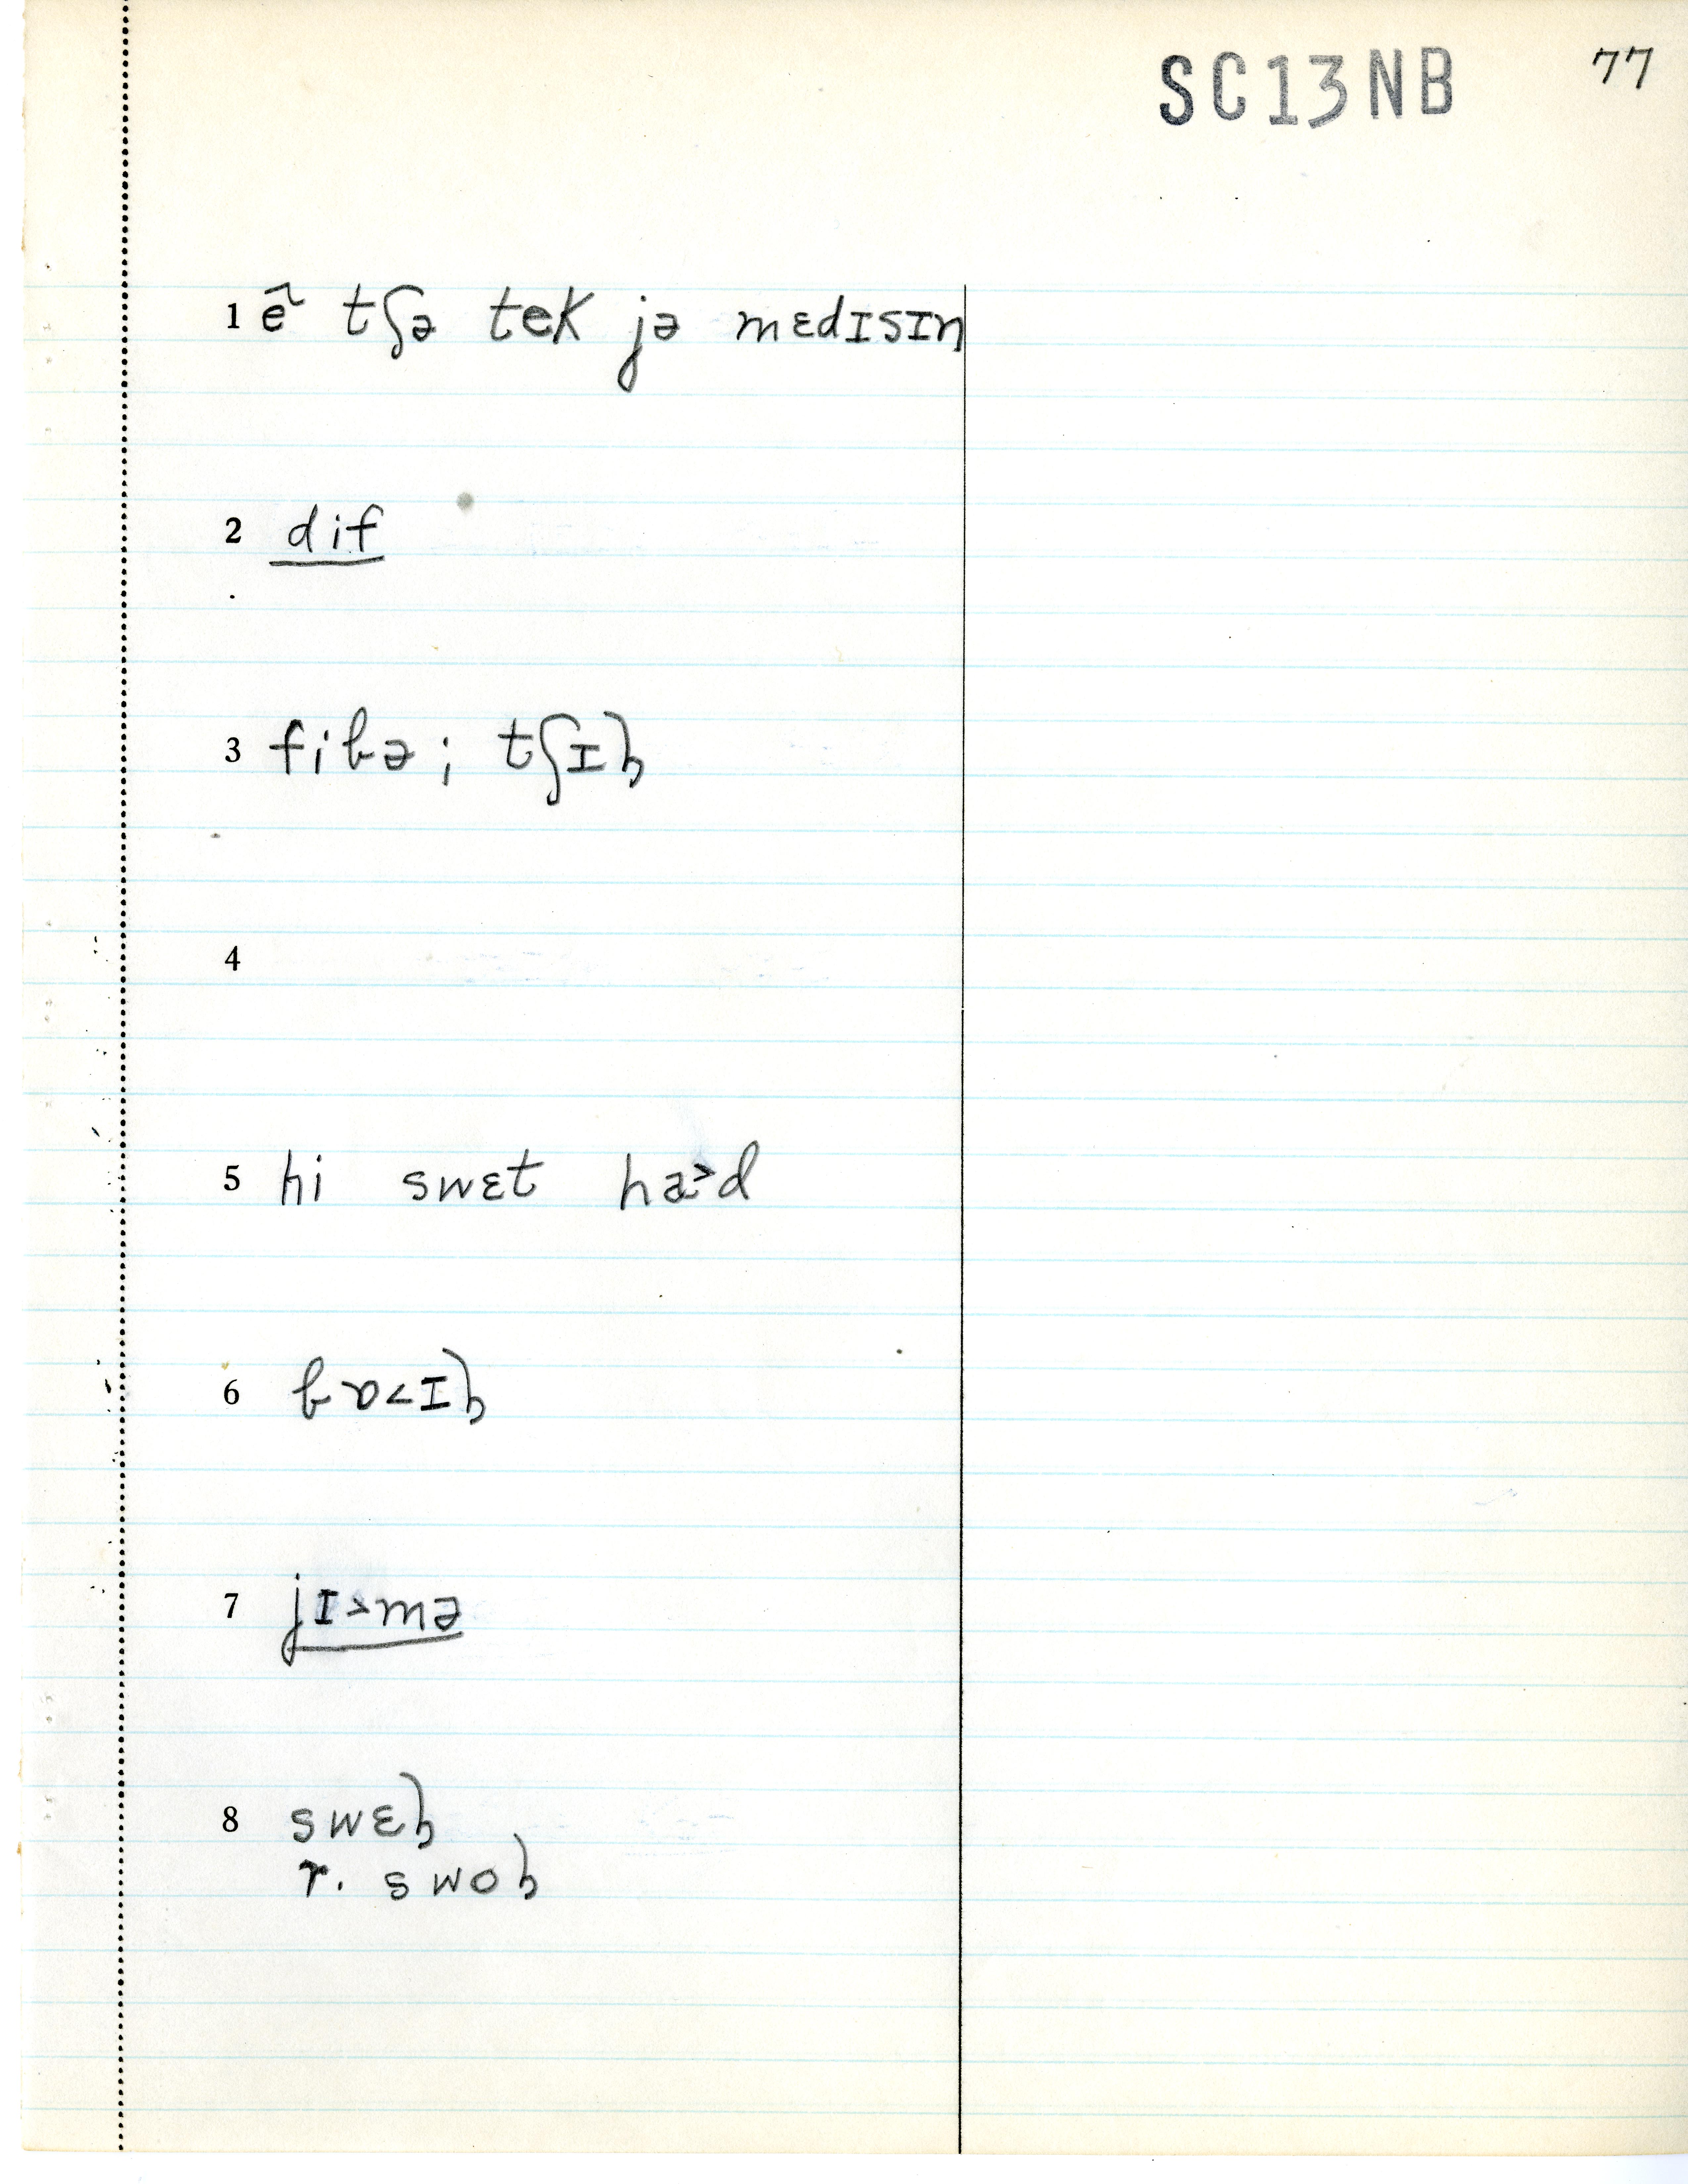 SC13NB 77
1 ẽ tʃə tek jə mɛdɪsɪn
2 dif
3 fibə; tʃɪl
4
5 hi swɛt ha˃d
6 bɒ˂ɪl
7 jɪ˃mə
8 swɛl
r. swol